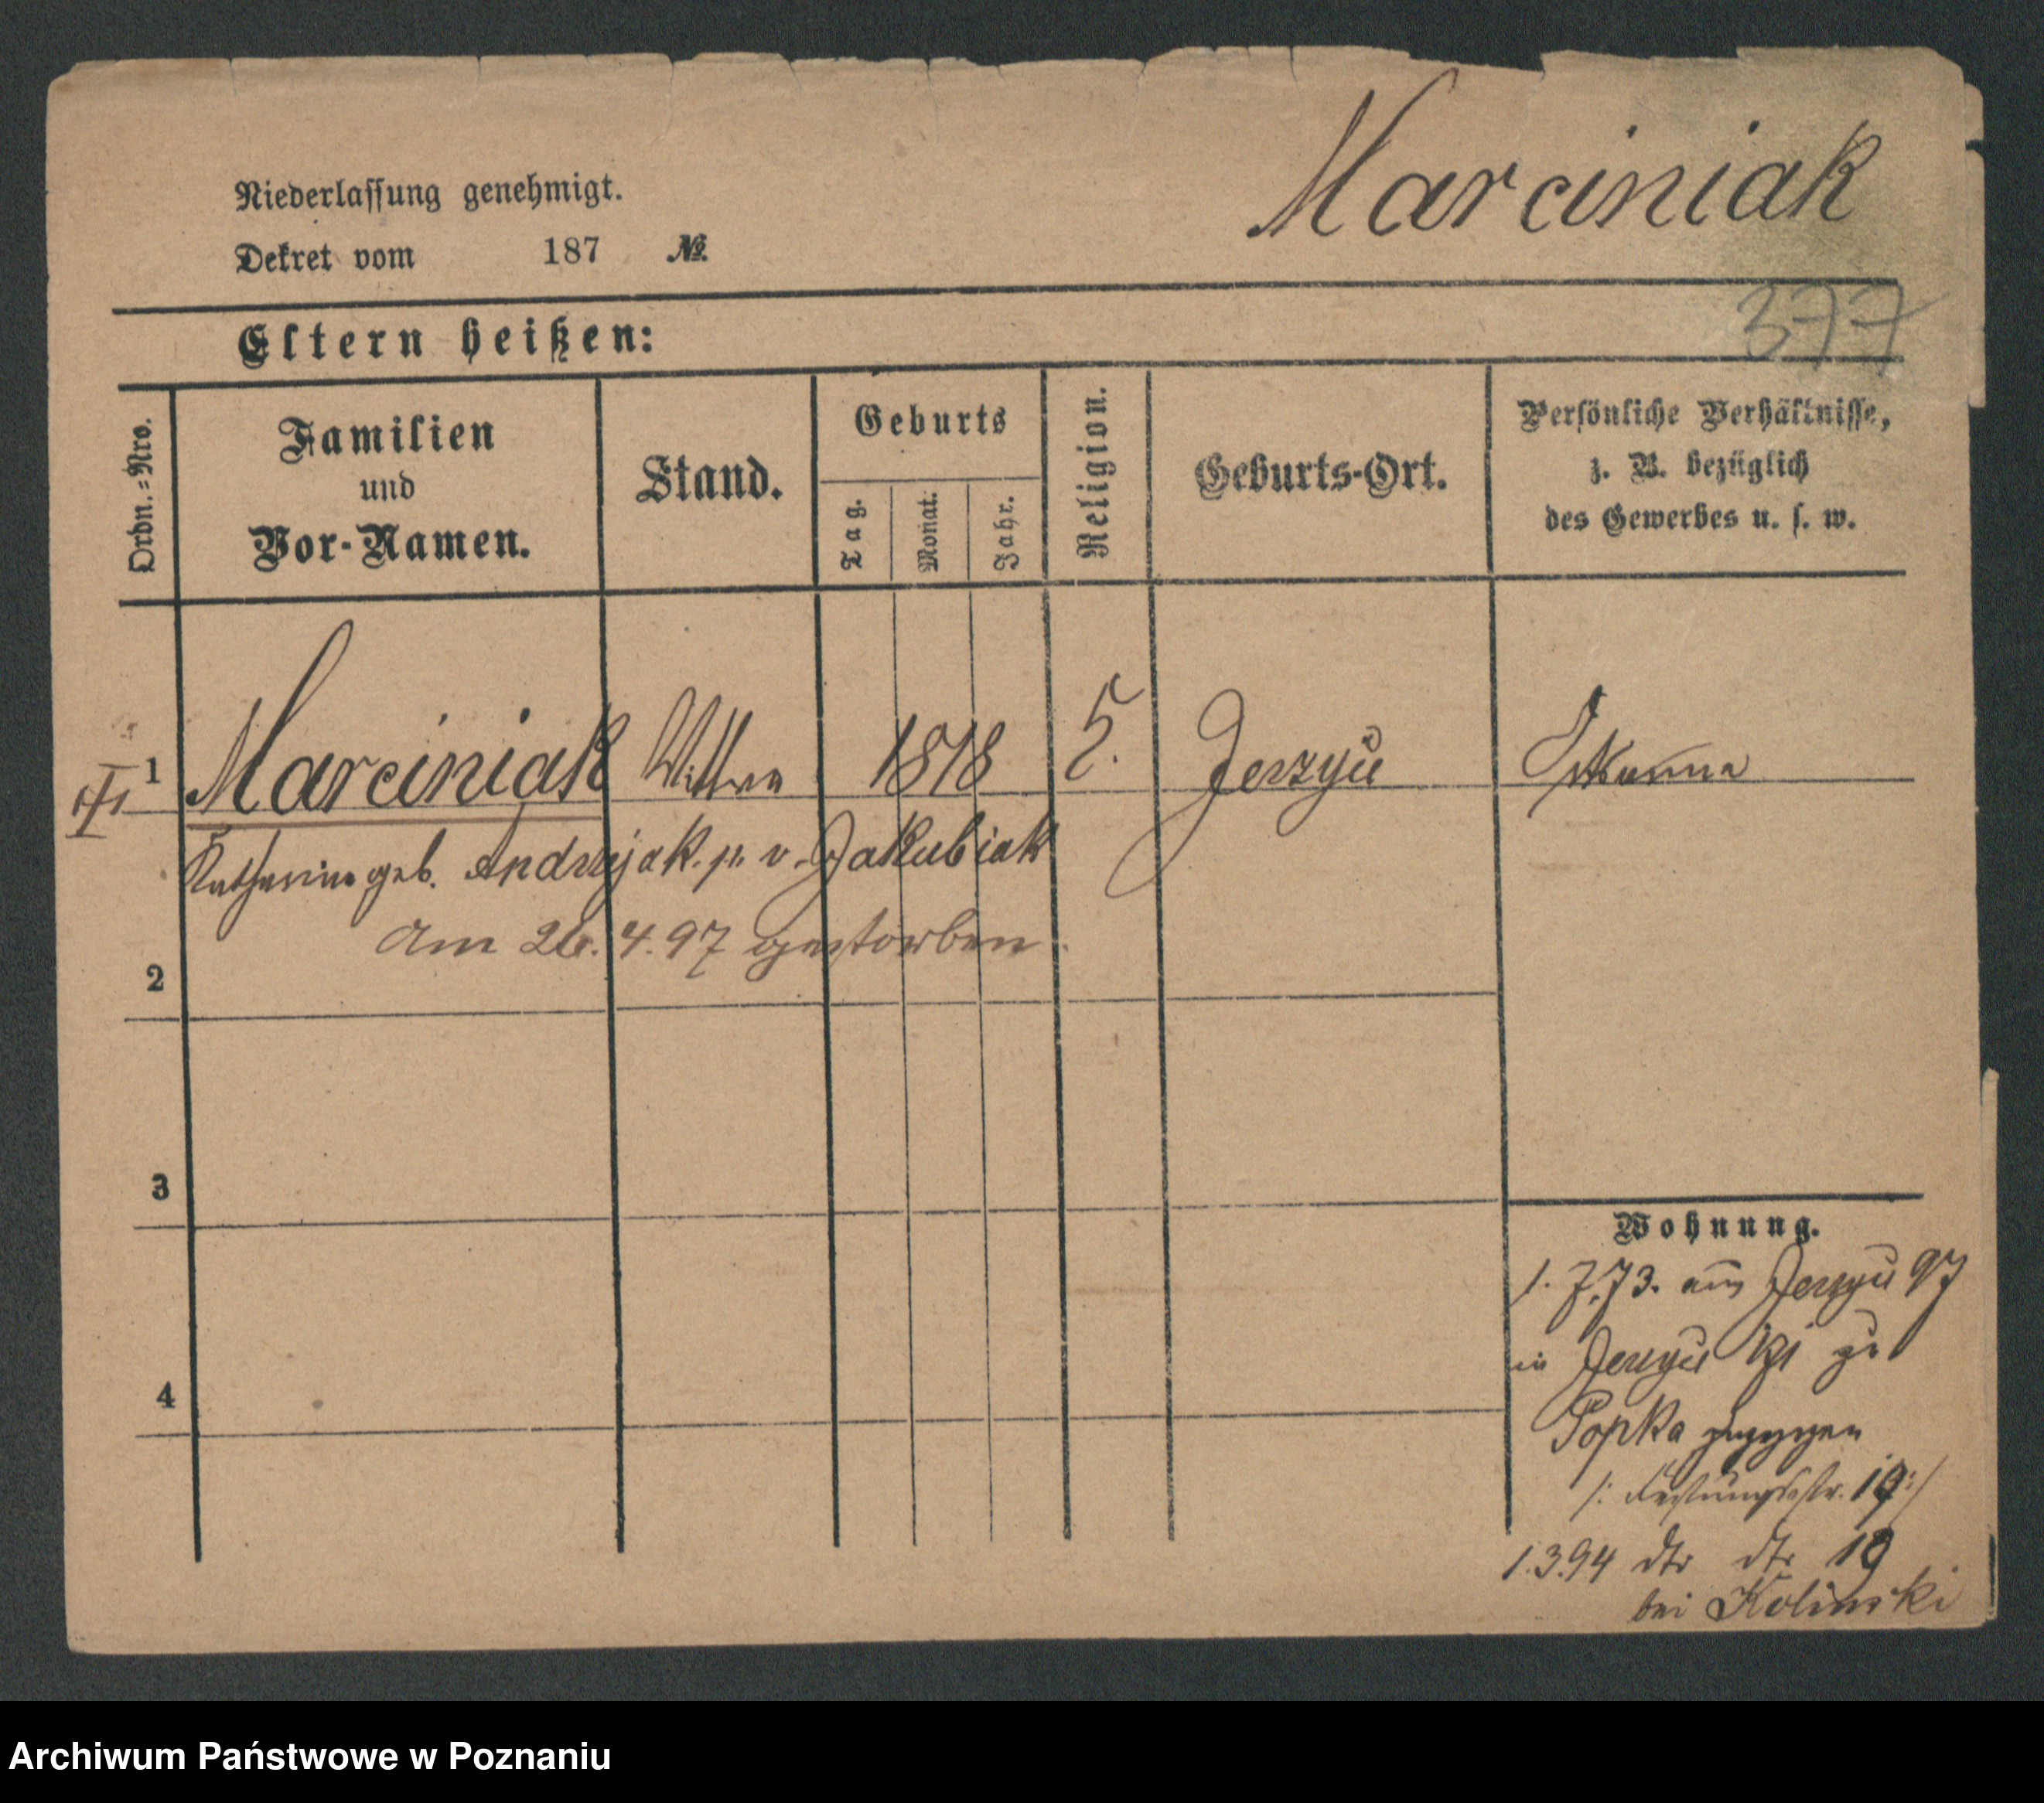 Marciniak
Niederlassung genehmigt.
Dekret vom 187 №.
377
Eltern heißen:
Ordn.-Nro.
Familien
und
Vor-Namen.
Stand.
Geburts
Tag.
Monat.
Jahr.
Religion.
Geburts-Ort.
Persönliche Verhältnisse,
z. B. bezüglich
des Gewerbes u. s. w.
1 Marciniak Wittwe 1818 Jerzyü
Katharina geb. Andrzejak. v. Jakubiak
am 26.4.97 gestorben.
2
3
4
Wohnung.
1.7.73. aus Jerzyü 97
in Jerzyü zu
Popka zugezogen
/: Festungsstr. 19 :/
1.3.94 dto dto 19
bei Kolinski
Archiwum Państwowe w Poznaniu